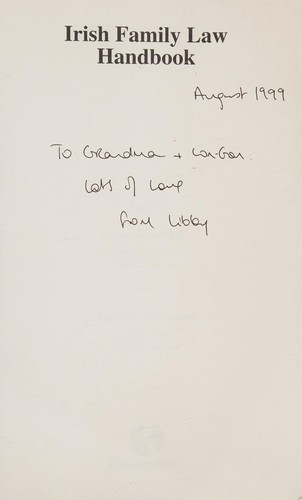 Irish Family Law
Handbook
August 1999
To Grandma +
Lots of Love
from Libby